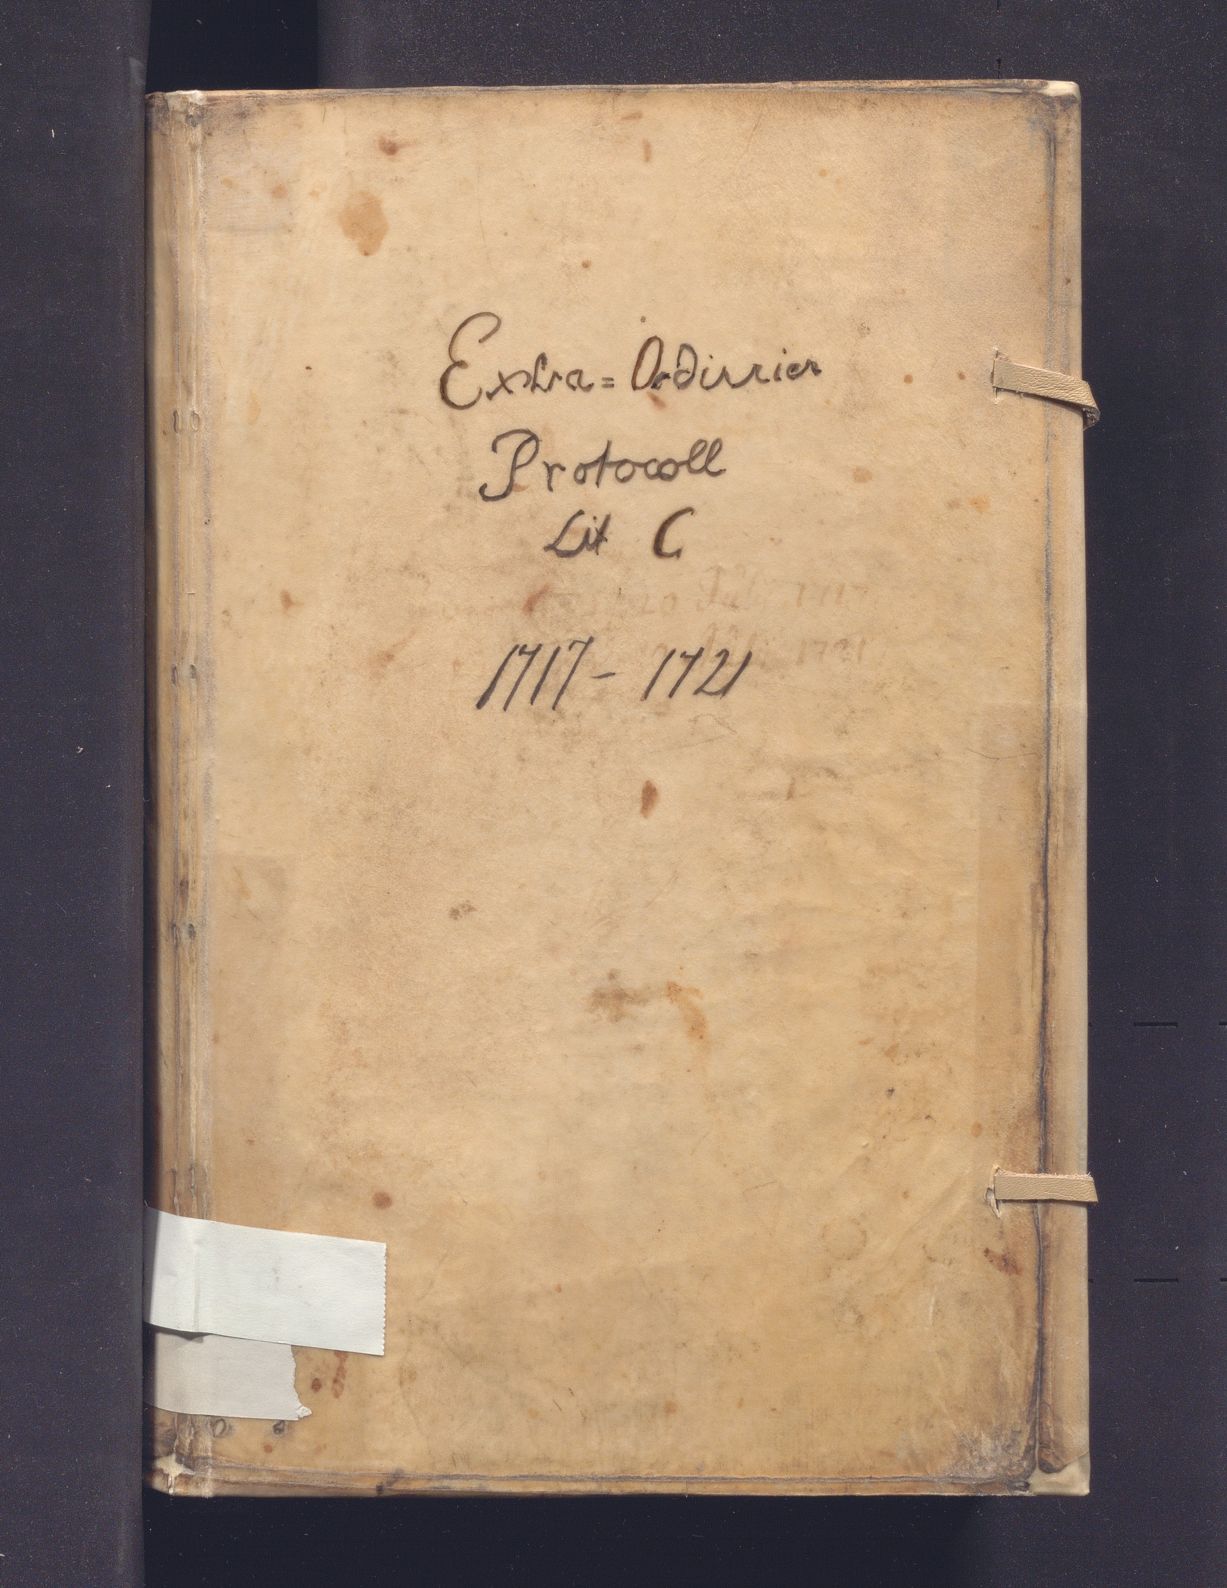 Extra=Ordinier
Protocoll
Lit C
1717
1721
1717 - 1721